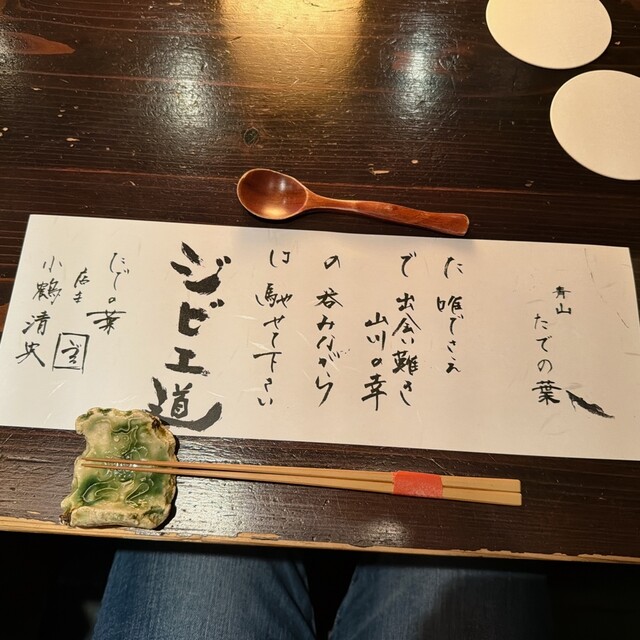 青山
たでの葉
た 唯でさえ
で 出会い難き
山川の幸
の 呑みながら
は 馳せて下さい
ジビエ道
たでの葉
店主
小鶴清史